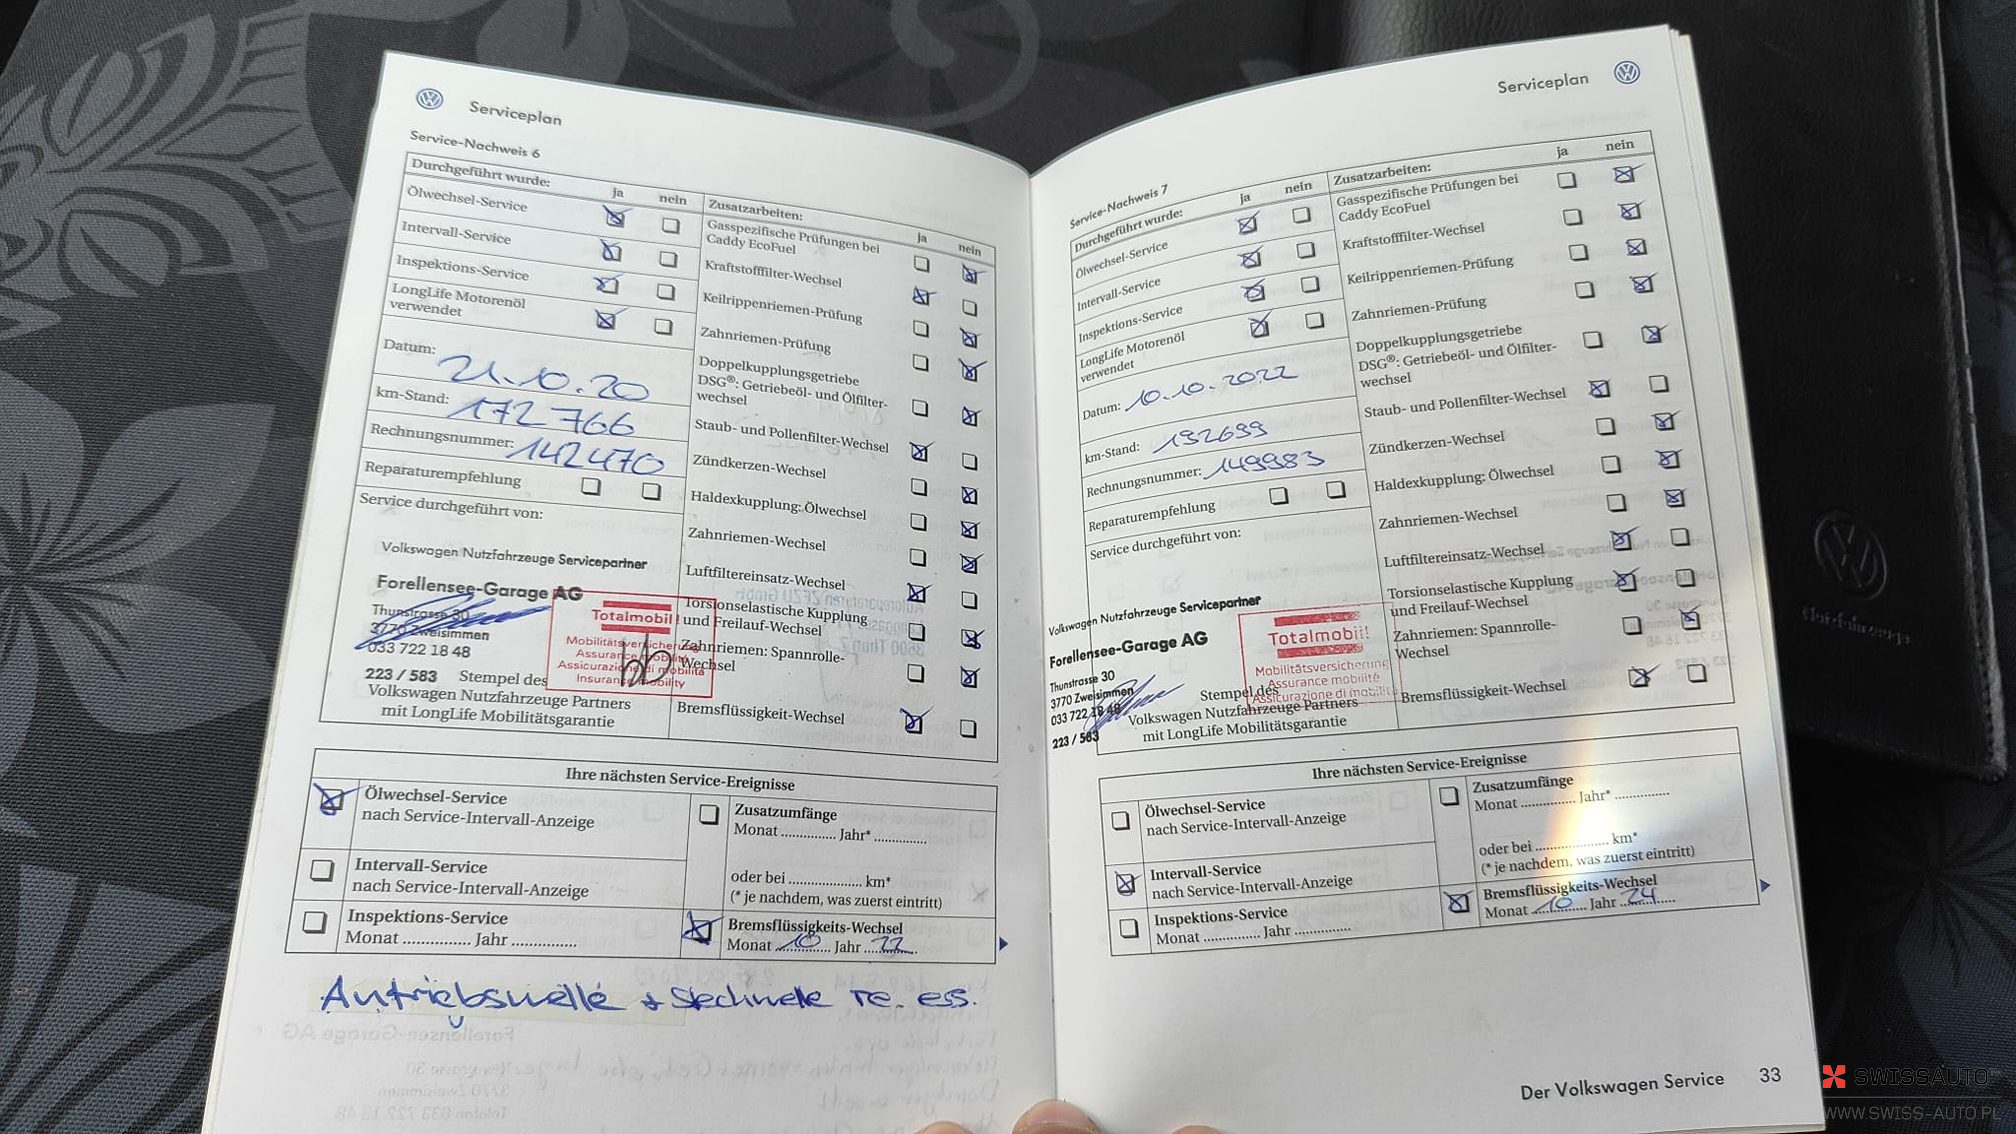 Serviceplan
Service-Nachweis 6
Durchgeführt wurde: ja nein
Ölwechsel-Service
Intervall-Service
Inspektions-Service
LongLife Motorenöl
verwendet
Datum: 21.10.20
km-Stand: 172 766
Rechnungsnummer: 142470
Reparaturempfehlung
Service durchgeführt von:
Volkswagen Nutzfahrzeuge Servicepartner
Forellensee-Garage AG
Thunstrasse 30
3770 Zweisimmen
033 722 18 48
223 / 583 Stempel des
Volkswagen Nutzfahrzeuge Partners
mit LongLife Mobilitätsgarantie
Totalmobil!
Mobilitätsversicherung
Assurance mobilité
Assicurazione di mobilità
Insurance mobility
Zusatzarbeiten: ja nein
Gasspezifische Prüfungen bei
Caddy EcoFuel
Kraftstofffilter-Wechsel
Keilrippenriemen-Prüfung
Zahnriemen-Prüfung
Doppelkupplungsgetriebe
DSG®: Getriebeöl- und Ölfilter-
wechsel
Staub- und Pollenfilter-Wechsel
Zündkerzen-Wechsel
Haldexkupplung: Ölwechsel
Zahnriemen-Wechsel
Luftfiltereinsatz-Wechsel
Torsionselastische Kupplung
und Freilauf-Wechsel
Zahnriemen: Spannrolle-
Wechsel
Bremsflüssigkeit-Wechsel
Ihre nächsten Service-Ereignisse
Ölwechsel-Service
nach Service-Intervall-Anzeige
Intervall-Service
nach Service-Intervall-Anzeige
Inspektions-Service
Monat ............... Jahr ...............
Zusatzumfänge
Monat ............... Jahr* ...............
oder bei .................... km*
(* je nachdem, was zuerst eintritt)
Bremsflüssigkeits-Wechsel
Monat 10 Jahr 22
Antriebswelle + Steckwelle re. ers.
Serviceplan
Service-Nachweis 7
Durchgeführt wurde: ja nein
Ölwechsel-Service
Intervall-Service
Inspektions-Service
LongLife Motorenöl
verwendet
Datum: 10.10.2022
km-Stand: 192699
Rechnungsnummer: 149983
Reparaturempfehlung
Service durchgeführt von:
Volkswagen Nutzfahrzeuge Servicepartner
Forellensee-Garage AG
Thunstrasse 30
3770 Zweisimmen
033 722 18 48
223 / 583
Stempel des
Volkswagen Nutzfahrzeuge Partners
mit LongLife Mobilitätsgarantie
Totalmobil!
Mobilitätsversicherung
Assurance mobilité
Assicurazione di mobilità
Zusatzarbeiten: ja nein
Gasspezifische Prüfungen bei
Caddy EcoFuel
Kraftstofffilter-Wechsel
Keilrippenriemen-Prüfung
Zahnriemen-Prüfung
Doppelkupplungsgetriebe
DSG®: Getriebeöl- und Ölfilter-
wechsel
Staub- und Pollenfilter-Wechsel
Zündkerzen-Wechsel
Haldexkupplung: Ölwechsel
Zahnriemen-Wechsel
Luftfiltereinsatz-Wechsel
Torsionselastische Kupplung
und Freilauf-Wechsel
Zahnriemen: Spannrolle-
Wechsel
Bremsflüssigkeit-Wechsel
Ihre nächsten Service-Ereignisse
Ölwechsel-Service
nach Service-Intervall-Anzeige
Intervall-Service
nach Service-Intervall-Anzeige
Inspektions-Service
Monat ............... Jahr ...............
Zusatzumfänge
Monat ............... Jahr* ...............
oder bei .................... km*
(* je nachdem, was zuerst eintritt)
Bremsflüssigkeits-Wechsel
Monat 10 Jahr 24
Der Volkswagen Service 33
Nutzfahrzeuge
SWISSAUTO
WWW.SWISS-AUTO.PL